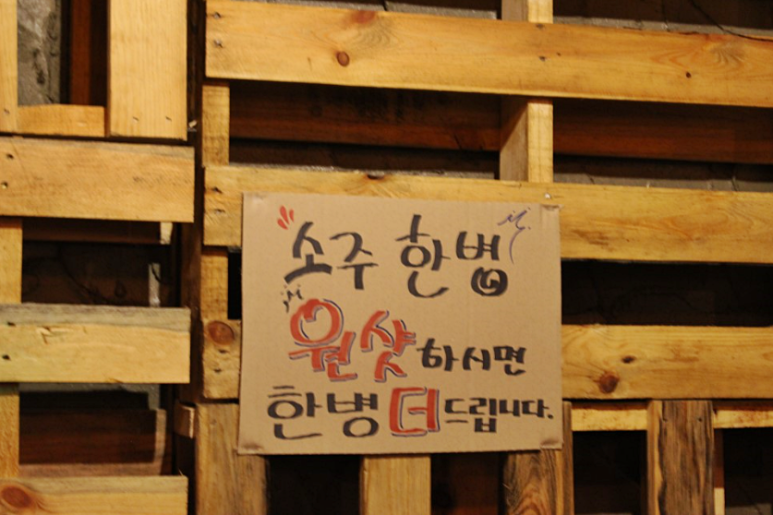 소주 한병
원샷하시면
한병 더 드립니다.